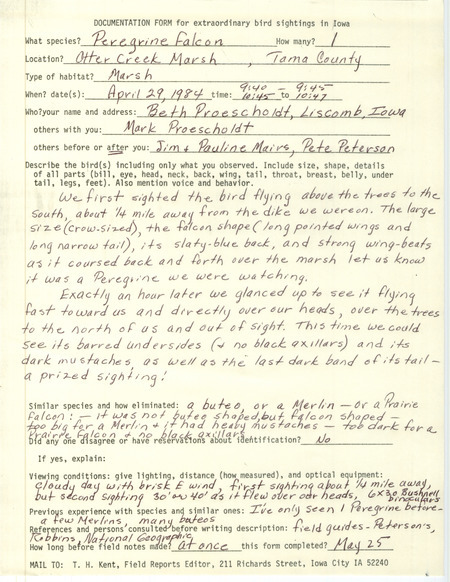 DOCUMENTATION FORM for extraordinary bird sightings in Iowa
What species? Peregrine Falcon How many? 1
Location? Otter Creek Marsh, Tama County
Type of habitat? Marsh
When? date(s): April 29, 1984 time: 9:40 - 9:45 10:45 to 10:47
Who? your name and address: Beth Proescholdt, Liscomb, Iowa
others with you: Mark Proescholdt
others before or after you: Jim & Pauline Mairs, Pete Peterson
Describe the bird(s) including only what you observed. Include size, shape, details
of all parts (bill, eye, head, neck, back, wing, tail, throat, breast, belly, under
tail, legs, feet). Also mention voice and behavior.
We first sighted the bird flying above the trees to the
south, about ¼ mile away from the dike we were on. The large
size (crow-sized), the falcon shape (long pointed wings and
long narrow tail), its slaty-blue back, and strong wing-beats
as it coursed back and forth over the marsh let us know
it was a Peregrine we were watching.
Exactly an hour later we glanced up to see it flying
fast toward us and directly over our heads, over the trees
to the north of us and out of sight. This time we could
see its barred undersides (& no black axillars) and its
dark mustaches as well as the last dark band of its tail -
a prized sighting!
Similar species and how eliminated: a buteo, or a Merlin - or a Prairie
Falcon: - it was not buteo shaped, but falcon shaped -
too big for a Merlin & it had heavy mustaches - too dark for a
Prairie Falcon & no black axillars
Did any one disagree or have reservations about identification? No
If yes, explain:
Viewing conditions: give lighting, distance (how measured), and optical equipment:
Cloudy day with brisk E wind, first sighting about ¼ mile away,
but second sighting 30' or 40' as it flew over our heads, 6x30 Bushnell binoculars
Previous experience with species and similar ones: I've only seen 1 Peregrine before -
a few Merlins, many buteos
References and persons consulted before writing description: field guides - Peterson's,
Robbins, National Geographic
How long before field notes made? at once this form completed? May 25
MAIL TO: T. H. Kent, Field Reports Editor, 211 Richards Street, Iowa City IA 52240